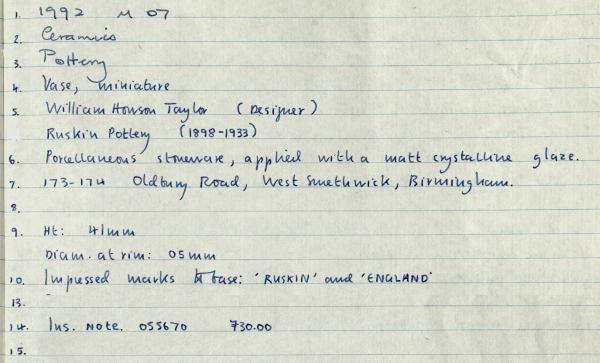 1. 1992 M 07
2. Ceramics
3. Pottery
4. Vase, miniature
5. William Howson Taylor (Designer)
Ruskin Pottery (1898-1933)
6. Porcellaneous stoneware, applied with a matt crystalline glaze.
7. 173-174 Oldbury Road, West Smethwick, Birmingham.
8.
9. Ht: 41mm
Diam. at rim: 05mm
10. Impressed marks to base: 'RUSKIN' and 'ENGLAND'
13.
14. Ins. Note. 055670 730.00
15.